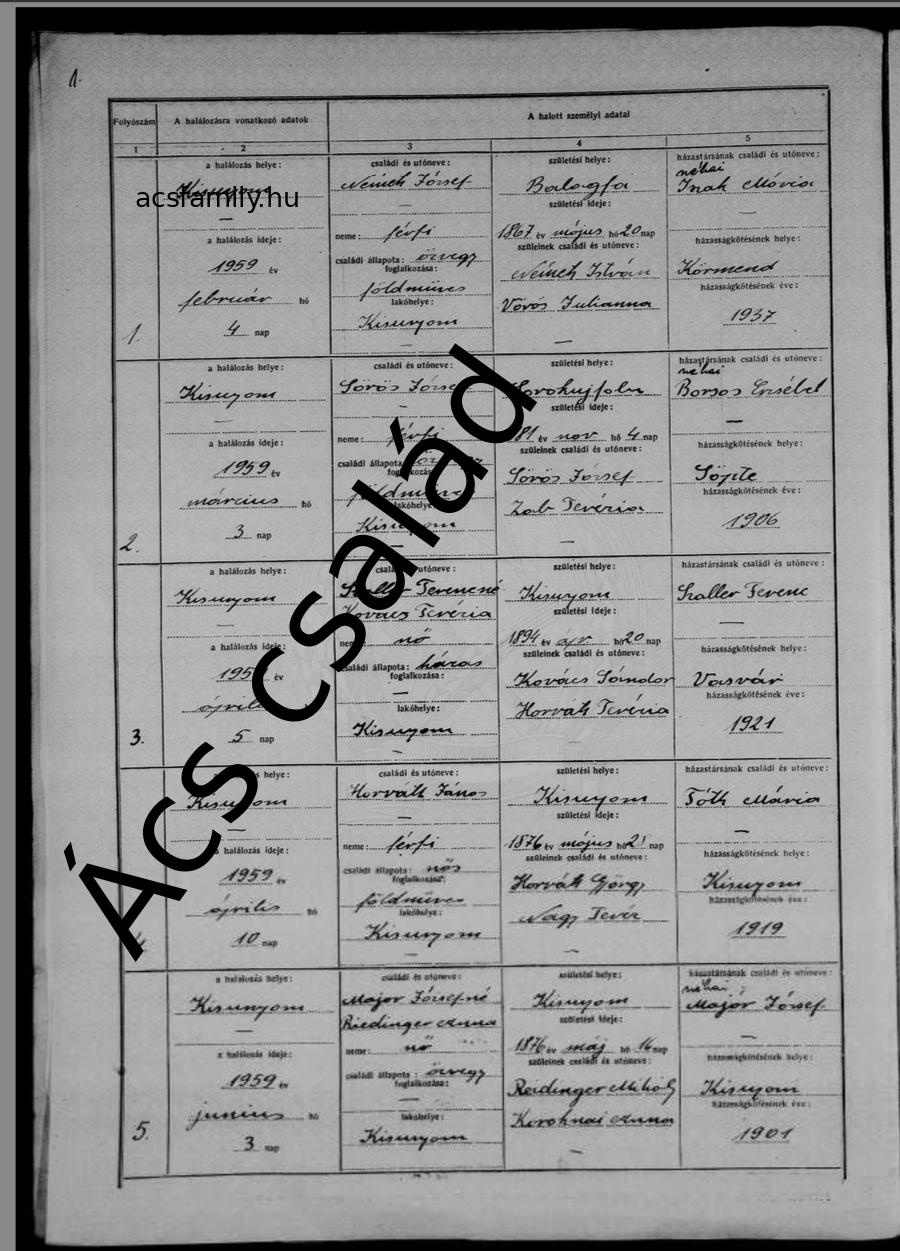 1.
Folyószám
A halálozásra vonatkozó adatok
A halott személyi adatai
1 2 3 4 5
a halálozás helye:
Kisunyom
acsfamily.hu
—
a halálozás ideje:
1959 év
február hó
4 nap
1.
családi és utóneve:
Németh József
—
neme: férfi
családi állapota: özvegy
foglalkozása:
földműves
lakóhelye:
Kisunyom
—
születési helye:
Balogfa
születési ideje:
1867 év május hó 20 nap
szüleinek családi és utóneve:
Németh István
Vörös Julianna
—
házastársának családi és utóneve:
néhai
Isak Mária
—
házasságkötésének helye:
Körmend
házasságkötésének éve:
1937
a halálozás helye:
Kisunyom
—
a halálozás ideje:
1959 év
március hó
3 nap
2.
családi és utóneve:
Sörös József
—
neme: férfi
családi állapota:
foglalkozása:
földműves
lakóhelye:
Kisunyom
—
születési helye:
Sorokujfalu
születési ideje:
1881 év nov hó 4 nap
szüleinek családi és utóneve:
Sörös József
Zab Terézia
—
házastársának családi és utóneve:
néhai
Borsos Erzsébet
—
házasságkötésének helye:
Söjte
házasságkötésének éve:
1906
a halálozás helye:
Kisunyom
—
a halálozás ideje:
195 év
április
5 nap
3.
családi és utóneve:
Szaller Ferencné
Kovács Terézia
neme: nő
családi állapota: házas
foglalkozása:
—
lakóhelye:
Kisunyom
—
születési helye:
Kisunyom
születési ideje:
1894 év ápr. hó 20 nap
szüleinek családi és utóneve:
Kovács Sándor
Horváth Terézia
—
házastársának családi és utóneve:
Szaller Ferenc
—
házasságkötésének helye:
Vasvár
házasságkötésének éve:
1921
a halálozás helye:
Kisunyom
—
a halálozás ideje:
1959 év
április hó
10 nap
4
családi és utóneve:
Horváth János
—
neme: férfi
családi állapota: nős
foglalkozása:
földműves
lakóhelye:
Kisunyom
—
születési helye:
Kisunyom
születési ideje:
1876 év május hó 21 nap
szüleinek családi és utóneve:
Horváth György
Nagy Teréz
—
házastársának családi és utóneve:
Tóth Mária
—
házasságkötésének helye:
Kisunyom
házasságkötésének éve:
1919
a halálozás helye:
Kisunyom
—
a halálozás ideje:
1959 év
junius hó
3 nap
5.
családi és utóneve:
Major Józsefné
Riedinger Anna
neme: nő
családi állapota: özvegy
foglalkozása:
—
lakóhelye:
Kisunyom
születési helye:
Kisunyom
születési ideje:
1876 év máj hó 16 nap
szüleinek családi és utóneve:
Reidinger Mihály
Koroknai Anna
—
házastársának családi és utóneve:
néhai
Major József
—
házasságkötésének helye:
Kisunyom
házasságkötésének éve:
1901
Ács család